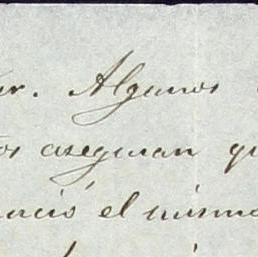 ur. Algunos
os aseguran qu
nació el mismo